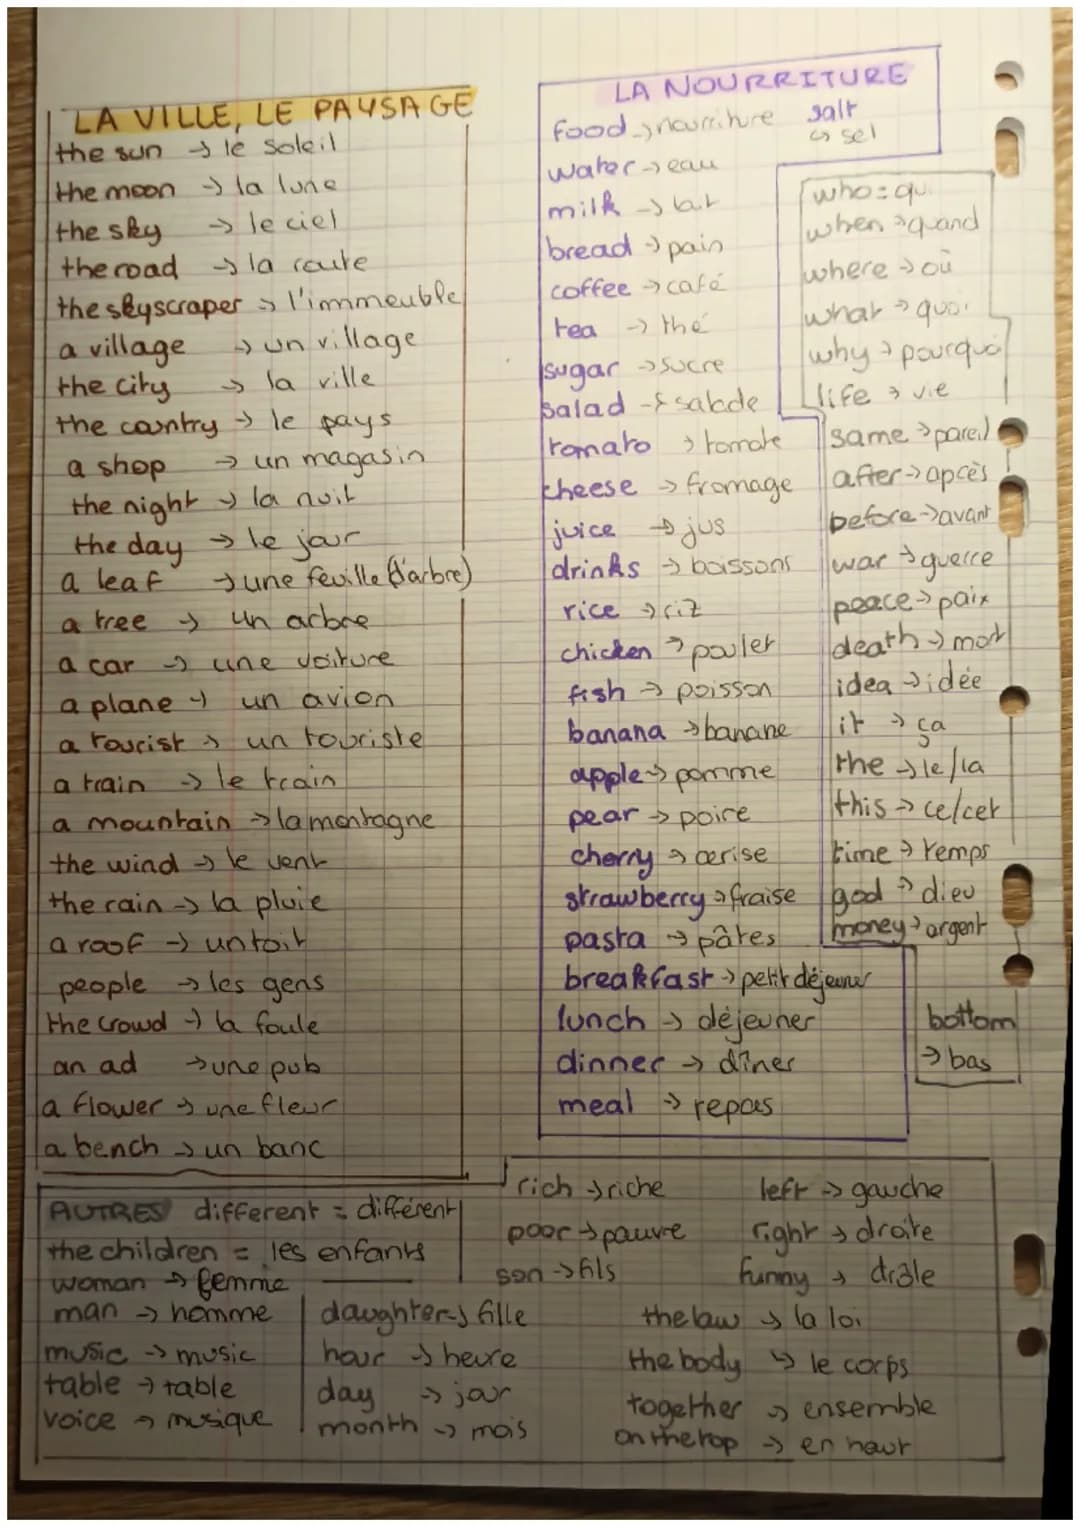 LA VILLE, LE PAYSAGE
the sun → le soleil
the moon → la lune
the sky → le ciel
the road → la route
the skyscraper → l'immeuble
a village → un village
the city → la ville
the country → le pays
a shop → un magasin
the night → la nuit
the day → le jour
a leaf → une feuille (d'arbre)
a tree → un arbre
a car → une voiture
a plane → un avion
a tourist → un touriste
a train → le train
a mountain → la montagne
the wind → le vent
the rain → la pluie
a roof → un toit
people → les gens
the crowd → la foule
an ad → une pub
a flower → une fleur
a bench → un banc
LA NOURRITURE
food → nourriture
salt
↳ sel
water → eau
milk → lait
bread → pain
coffee → café
tea → thé
sugar → sucre
salad → salade
tomato → tomate
cheese → fromage
juice → jus
drinks → boissons
rice → riz
chicken → poulet
fish → poisson
banana → banane
apple → pomme
pear → poire
cherry → cerise
strawberry → fraise
pasta → pâtes
breakfast → petit déjeuner
lunch → déjeuner
dinner → dîner
meal → repas
who = qui
when → quand
where → où
what → quoi
why → pourquoi
life → vie
same → pareil
after → après
before → avant
war → guerre
peace → paix
death → mort
idea → idée
it → ça
the → le/la
this → ce/cet
time → temps
god → dieu
money → argent
bottom
→ bas
AUTRES different = différent
the children = les enfants
woman → femme
man → homme
music → music
table → table
voice → musique
daughter → fille
hour → heure
day → jour
month → mois
rich → riche
poor → pauvre
son → fils
left → gauche
right → droite
funny → drôle
the law → la loi
the body → le corps
together → ensemble
on the top → en haut